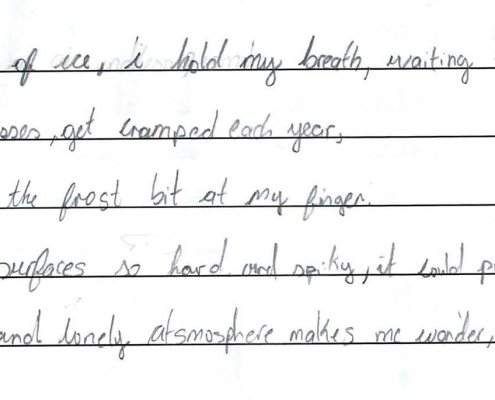 of ice, i hold my breath, waiting
oses, get cramped each year,
the frost bit at my finger.
surfaces so hard and spiky, it could p
and lonely atsmosphere makes me wonder,